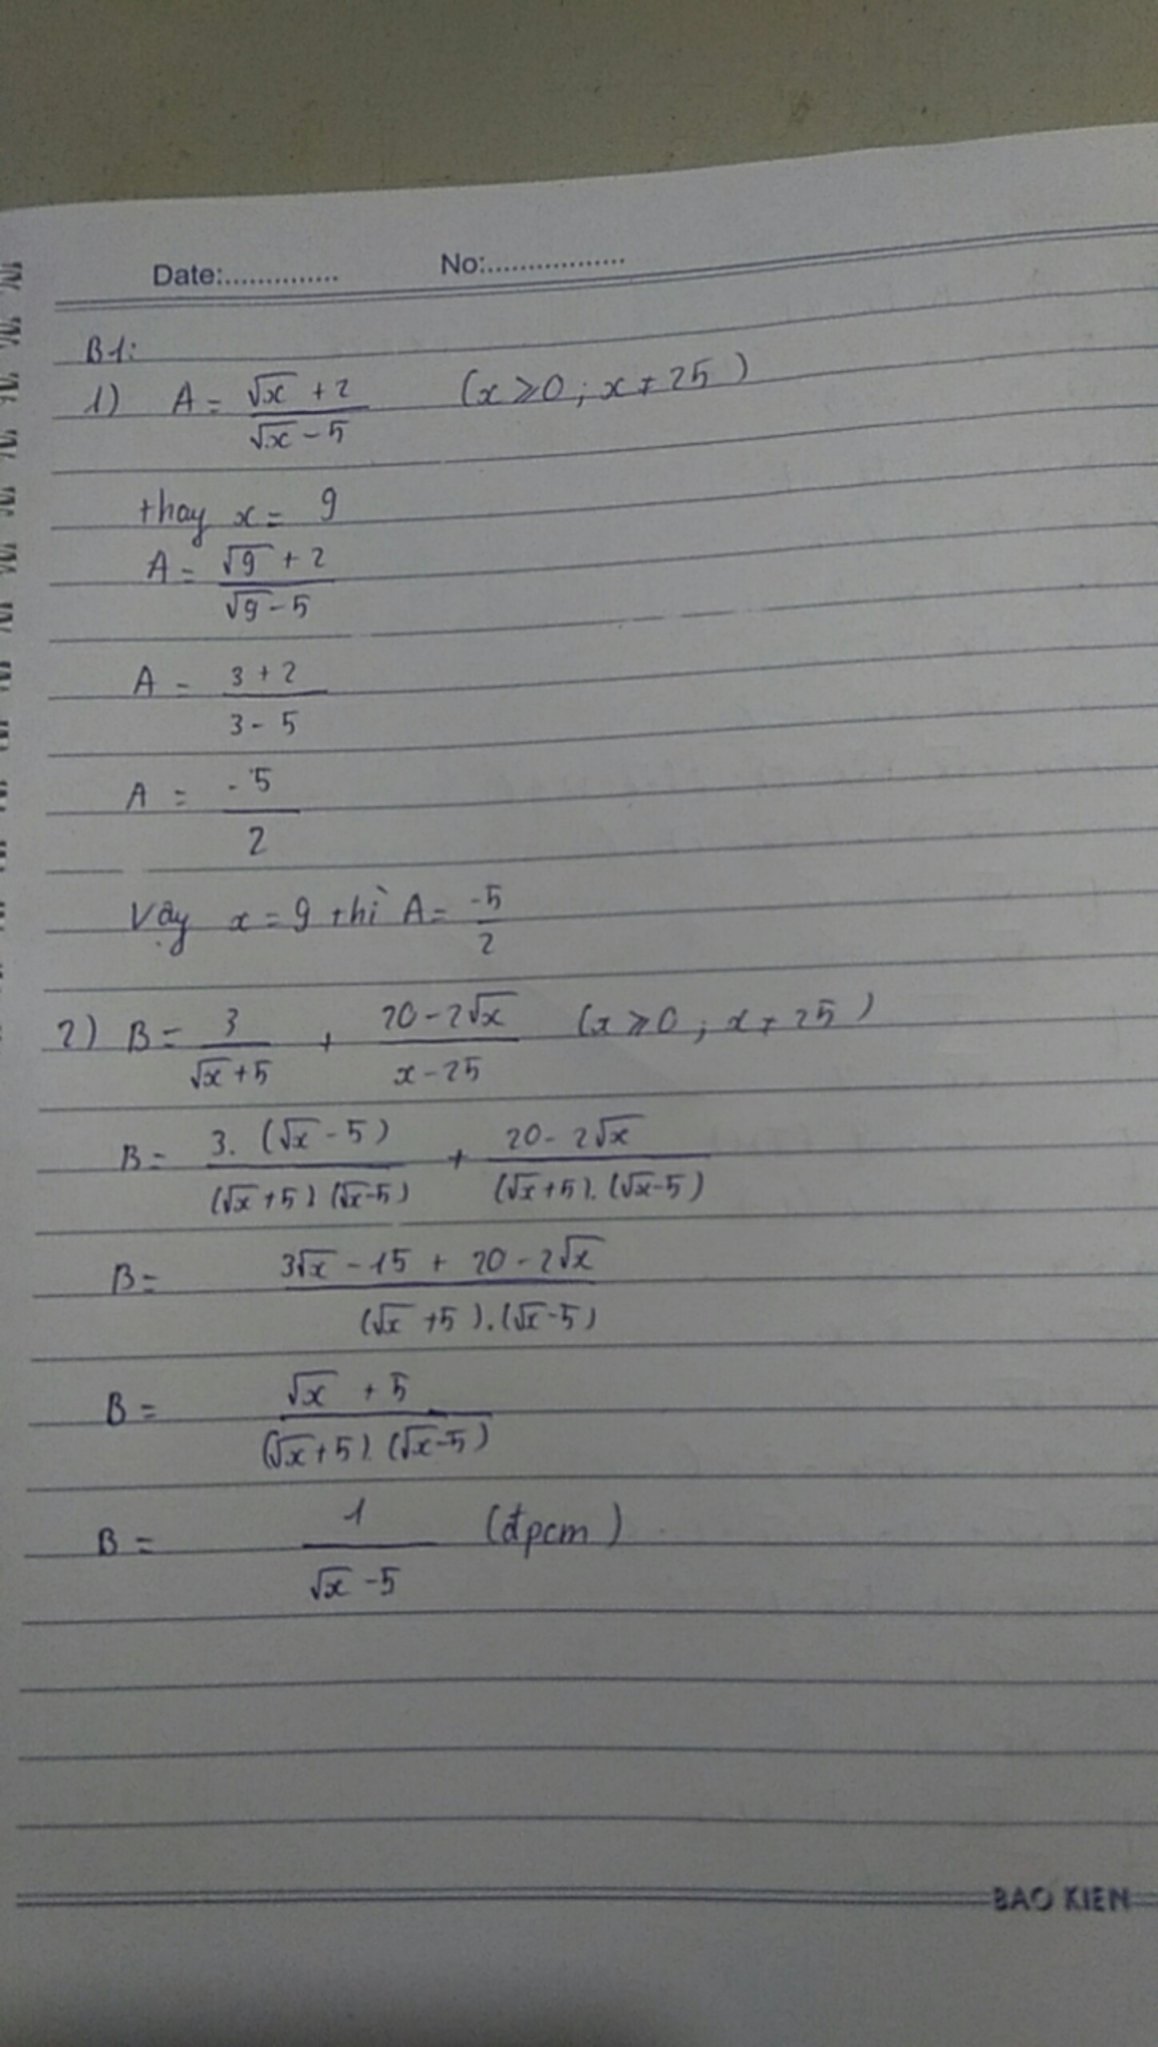 Date:.............. No:.................
B1:
1) A = (√x + 2)/(√x - 5) (x ≥ 0 ; x ≠ 25)
thay x = 9
A = (√9 + 2)/(√9 - 5)
A = (3 + 2)/(3 - 5)
A = -5/2
Vậy x = 9 thì A = -5/2
2) B = 3/(√x + 5) + (20 - 2√x)/(x - 25) (x ≥ 0 ; x ≠ 25)
B = 3.(√x - 5)/(√x + 5).(√x - 5) + (20 - 2√x)/(√x + 5).(√x - 5)
B = (3√x - 15 + 20 - 2√x)/(√x + 5).(√x - 5)
B = (√x + 5)/(√x + 5).(√x - 5)
B = 1/(√x - 5) (đpcm)
BAO KIEN